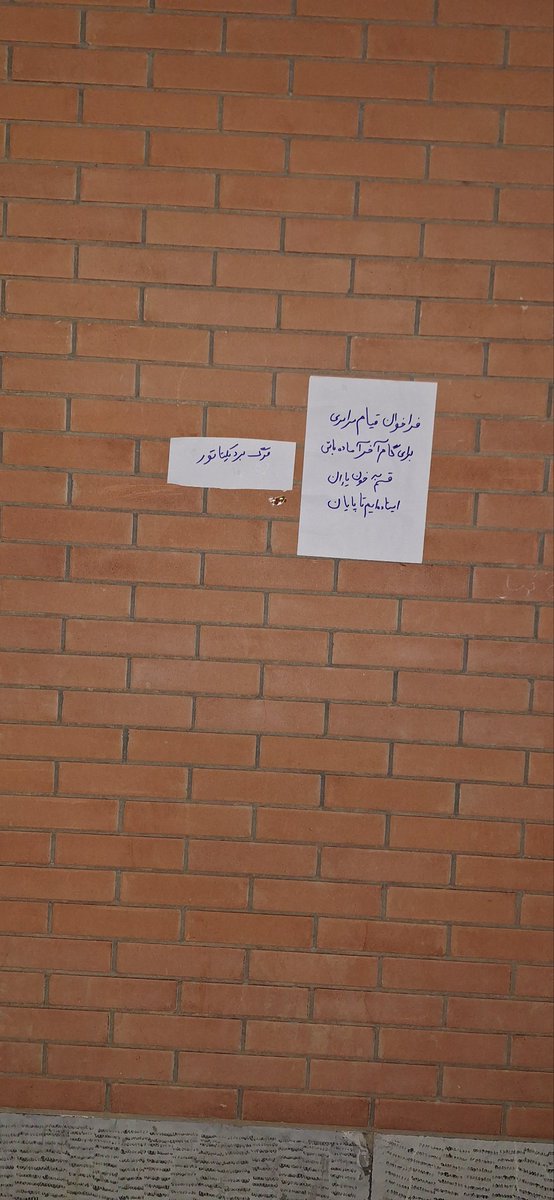 فراخوان قیام سراسری
برای گام آخر آماده باش
قسم به خون یاران
ایستاده‌ایم تا پایان
مرگ بر دیکتاتور